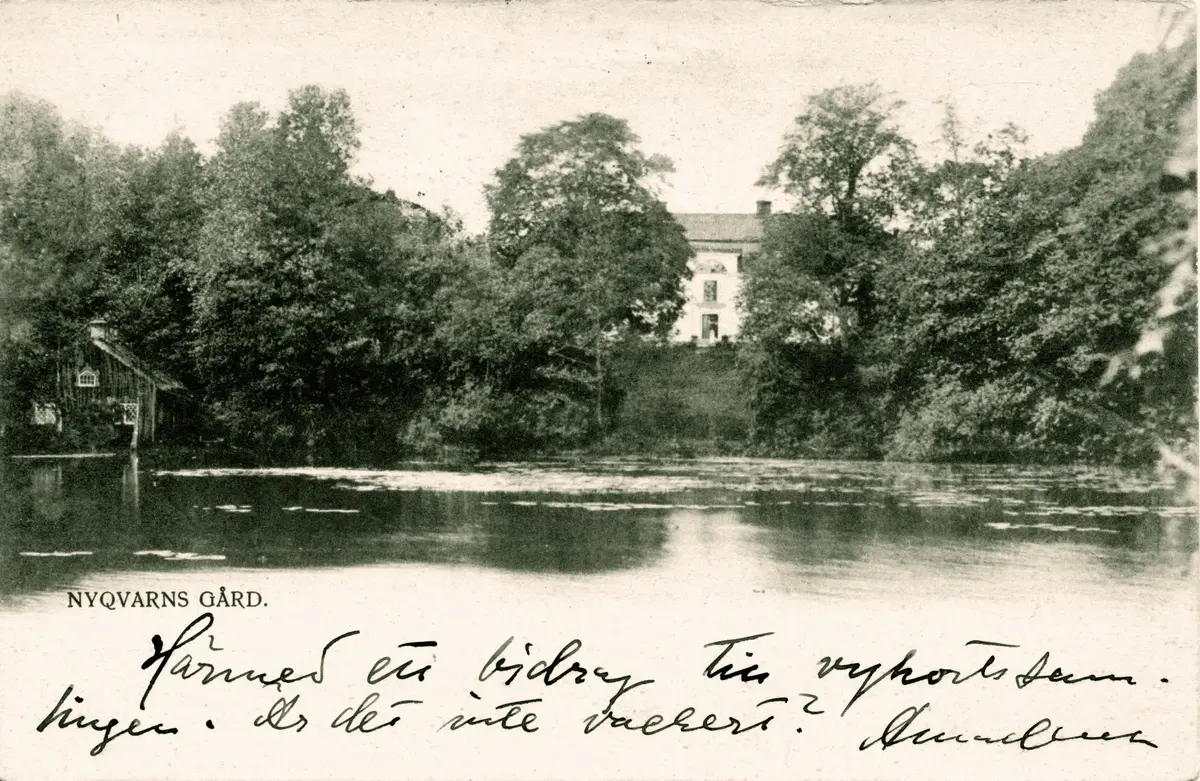 NYQVARNS GÅRD.
Härmed ett bidrag till vykortssam-
lingen. Är det inte vackert?